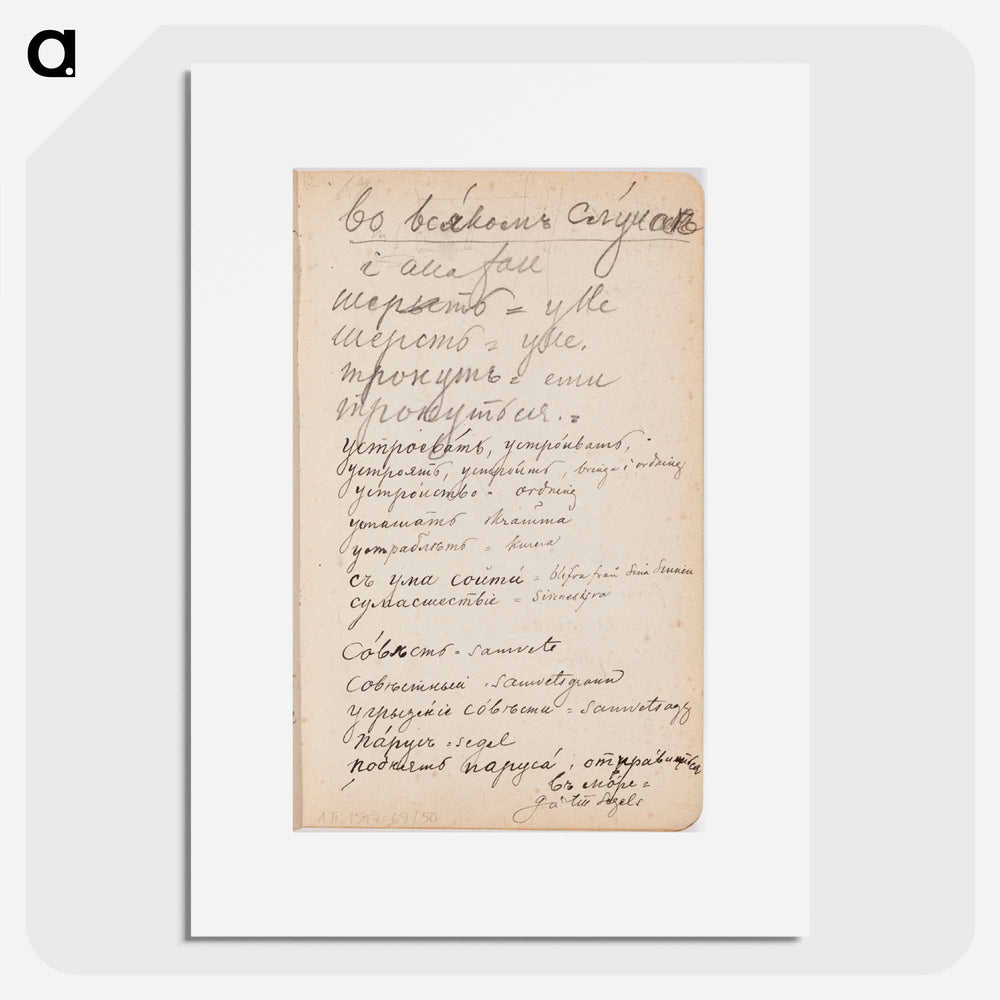 a.
во вся́комъ слу́чаѣ
i alla fall
шерьсть = ylle
шерсть = ylle.
тронуть =
тронуться. =
устроева́ть, устро́ивать,
устроять, устро́ить, bringa i ordning
устро́йство = ordning
устрашать skrämma
= kurera
съ ума сойти́ = från sina sinnen
сумасшествіе =
Со́вѣсть = samvete
совѣстный = samvetsgrann
угрызе́ніе со́вѣсти = samvetsagg
па́русъ = segel
поднять паруса́, отпра́виться
въ мо́ре =
gå till segels
1 II 1517:69/50